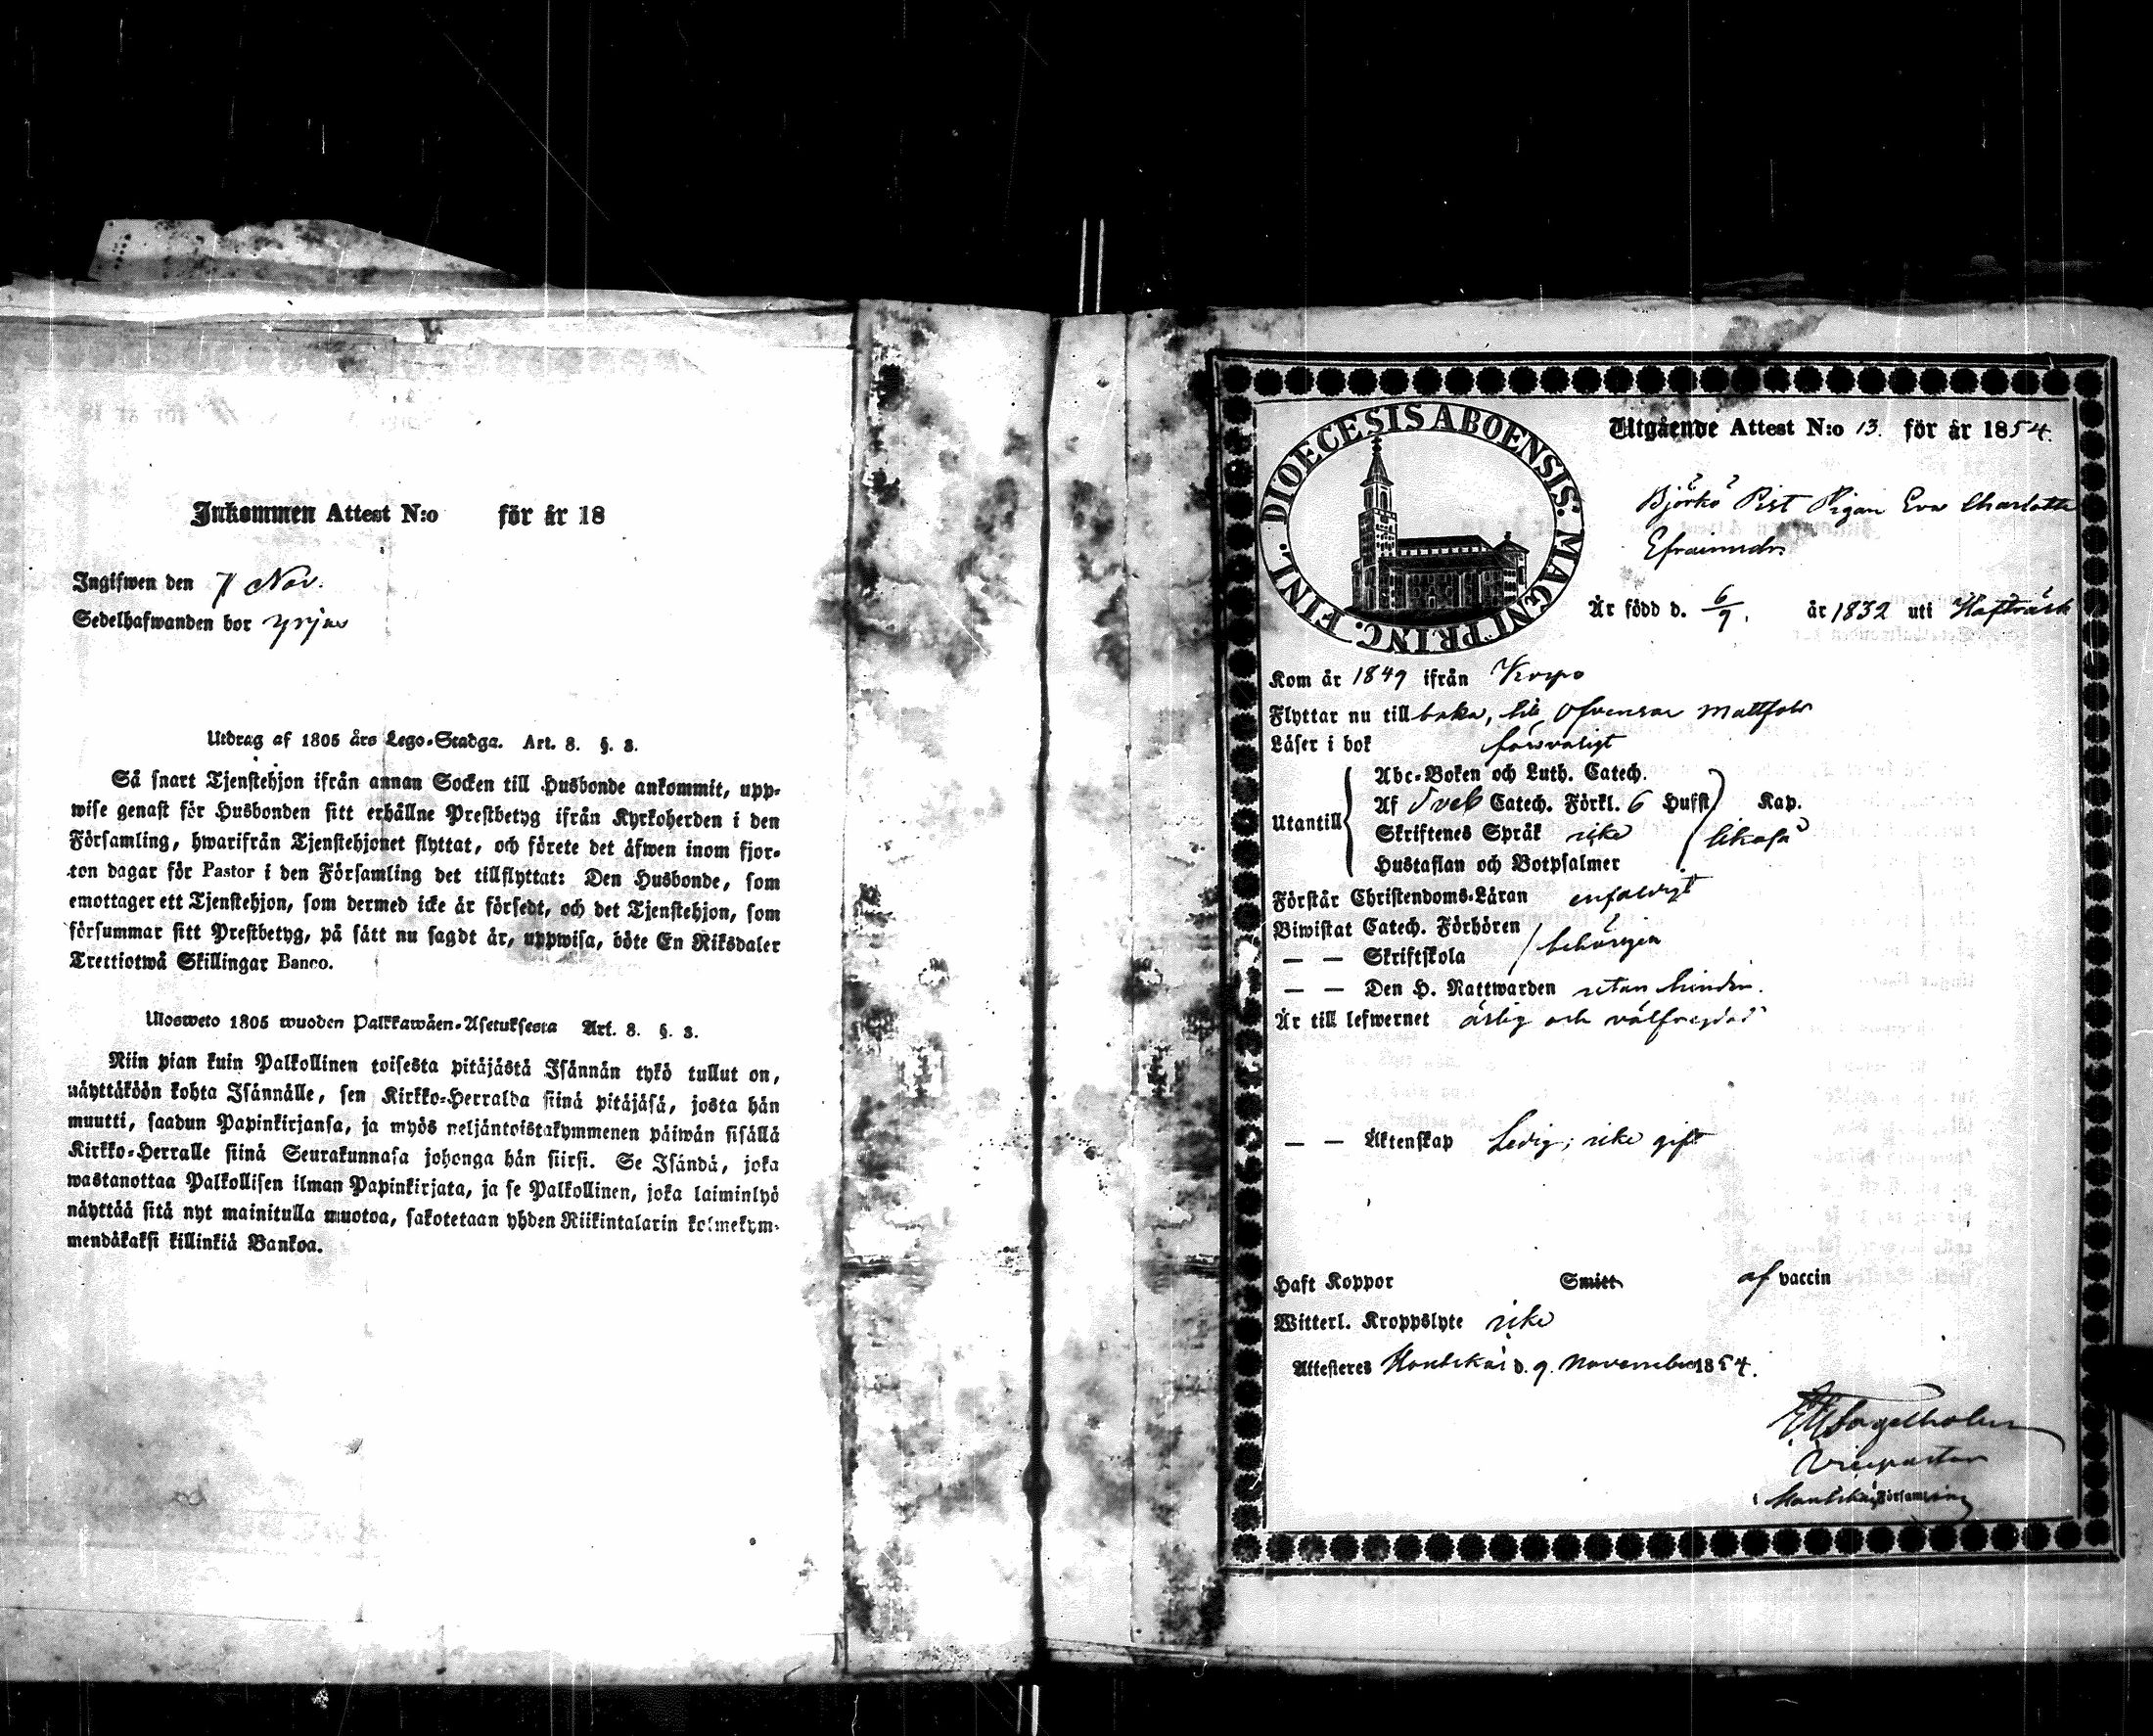 Inkommen Attest N:o för år 18
Ingifwen den 7 Nov.
Sedelhafwanden bor
Utdrag af 1805 års Lego-Stadga. Art. 8. §. 3.
Så snart Tjenstehjon ifrån annan Socken till Husbonde ankommit, upp-
wise genast för Husbonden sitt erhållne Prestbetyg ifrån Kyrkoherden i den
Församling, hwarifrån Tjenstehjonet flyttat, och förete det äfwen inom fjor-
ton dagar för Pastor i den Församling det tillflyttat: Den Husbonde, som
emottager ett Tjenstehjon, som dermed icke är försedt, och det Tjenstehjon, som
försummar sitt Prestbetyg, på sätt nu sagdt är, uppwisa, böte En Riksdaler
Trettiotwå Skillingar Banco.
Ulosweto 1805 wuoden Palkkawäen-Asetuksesta Art. 8. §. 3.
Niin pian kuin Palkollinen toisesta pitäjästä Isännän tykö tullut on,
näyttäköön kohta Isännälle, sen Kirkko-Herralda siinä pitäjäsä, josta hän
muutti, saadun Papinkirjansa, ja myös neljäntoistakymmenen päiwän sisällä
Kirkko-Herralle siinä Seurakunnasa johonga hän siirsi. Se Isändä, joka
wastanottaa Palkollisen ilman Papinkirjata, ja se Palkollinen, joka laiminlyö
näyttää sitä nyt mainitulla muotoa, sakotetaan yhden Riikintalarin kolmekym-
mendäkaksi killinkiä Bankoa.
DIOECESIS ABOENSIS. MAGNI PRINC. FINL.
Utgående Attest N:o 13. för år 1854.
Björkö Pigan Eva Charlotta
Efraimsdr
Är född d. 6/9. år 1832 uti
Kom år 1849 ifrån Korpo
Flyttar nu till baka, till Öfvensor Mattfolk
Läser i bok försvarligt
Abc-Boken och Luth. Catech.
Utantill Af Sveb Catech. Förkl. 6 Hufst Kap.
Skriftenes Språk icke likaså
Hustaflan och Botpsalmer
Förstår Christendoms-Läran enfaldigt
Biwistat Catech. Förhören
— — Skriftskola behörigen
— — Den H. Nattwarden utan hinder.
Är till lefwernet ärlig och välfrejdad
— — Äktenskap Ledig; icke gift
Haft Koppor Smitt af vaccin
Witterl. Kroppslyte icke
Attesteras Houtskär d. 9 November 1854.
Vicepastor
i Houtskär Församling